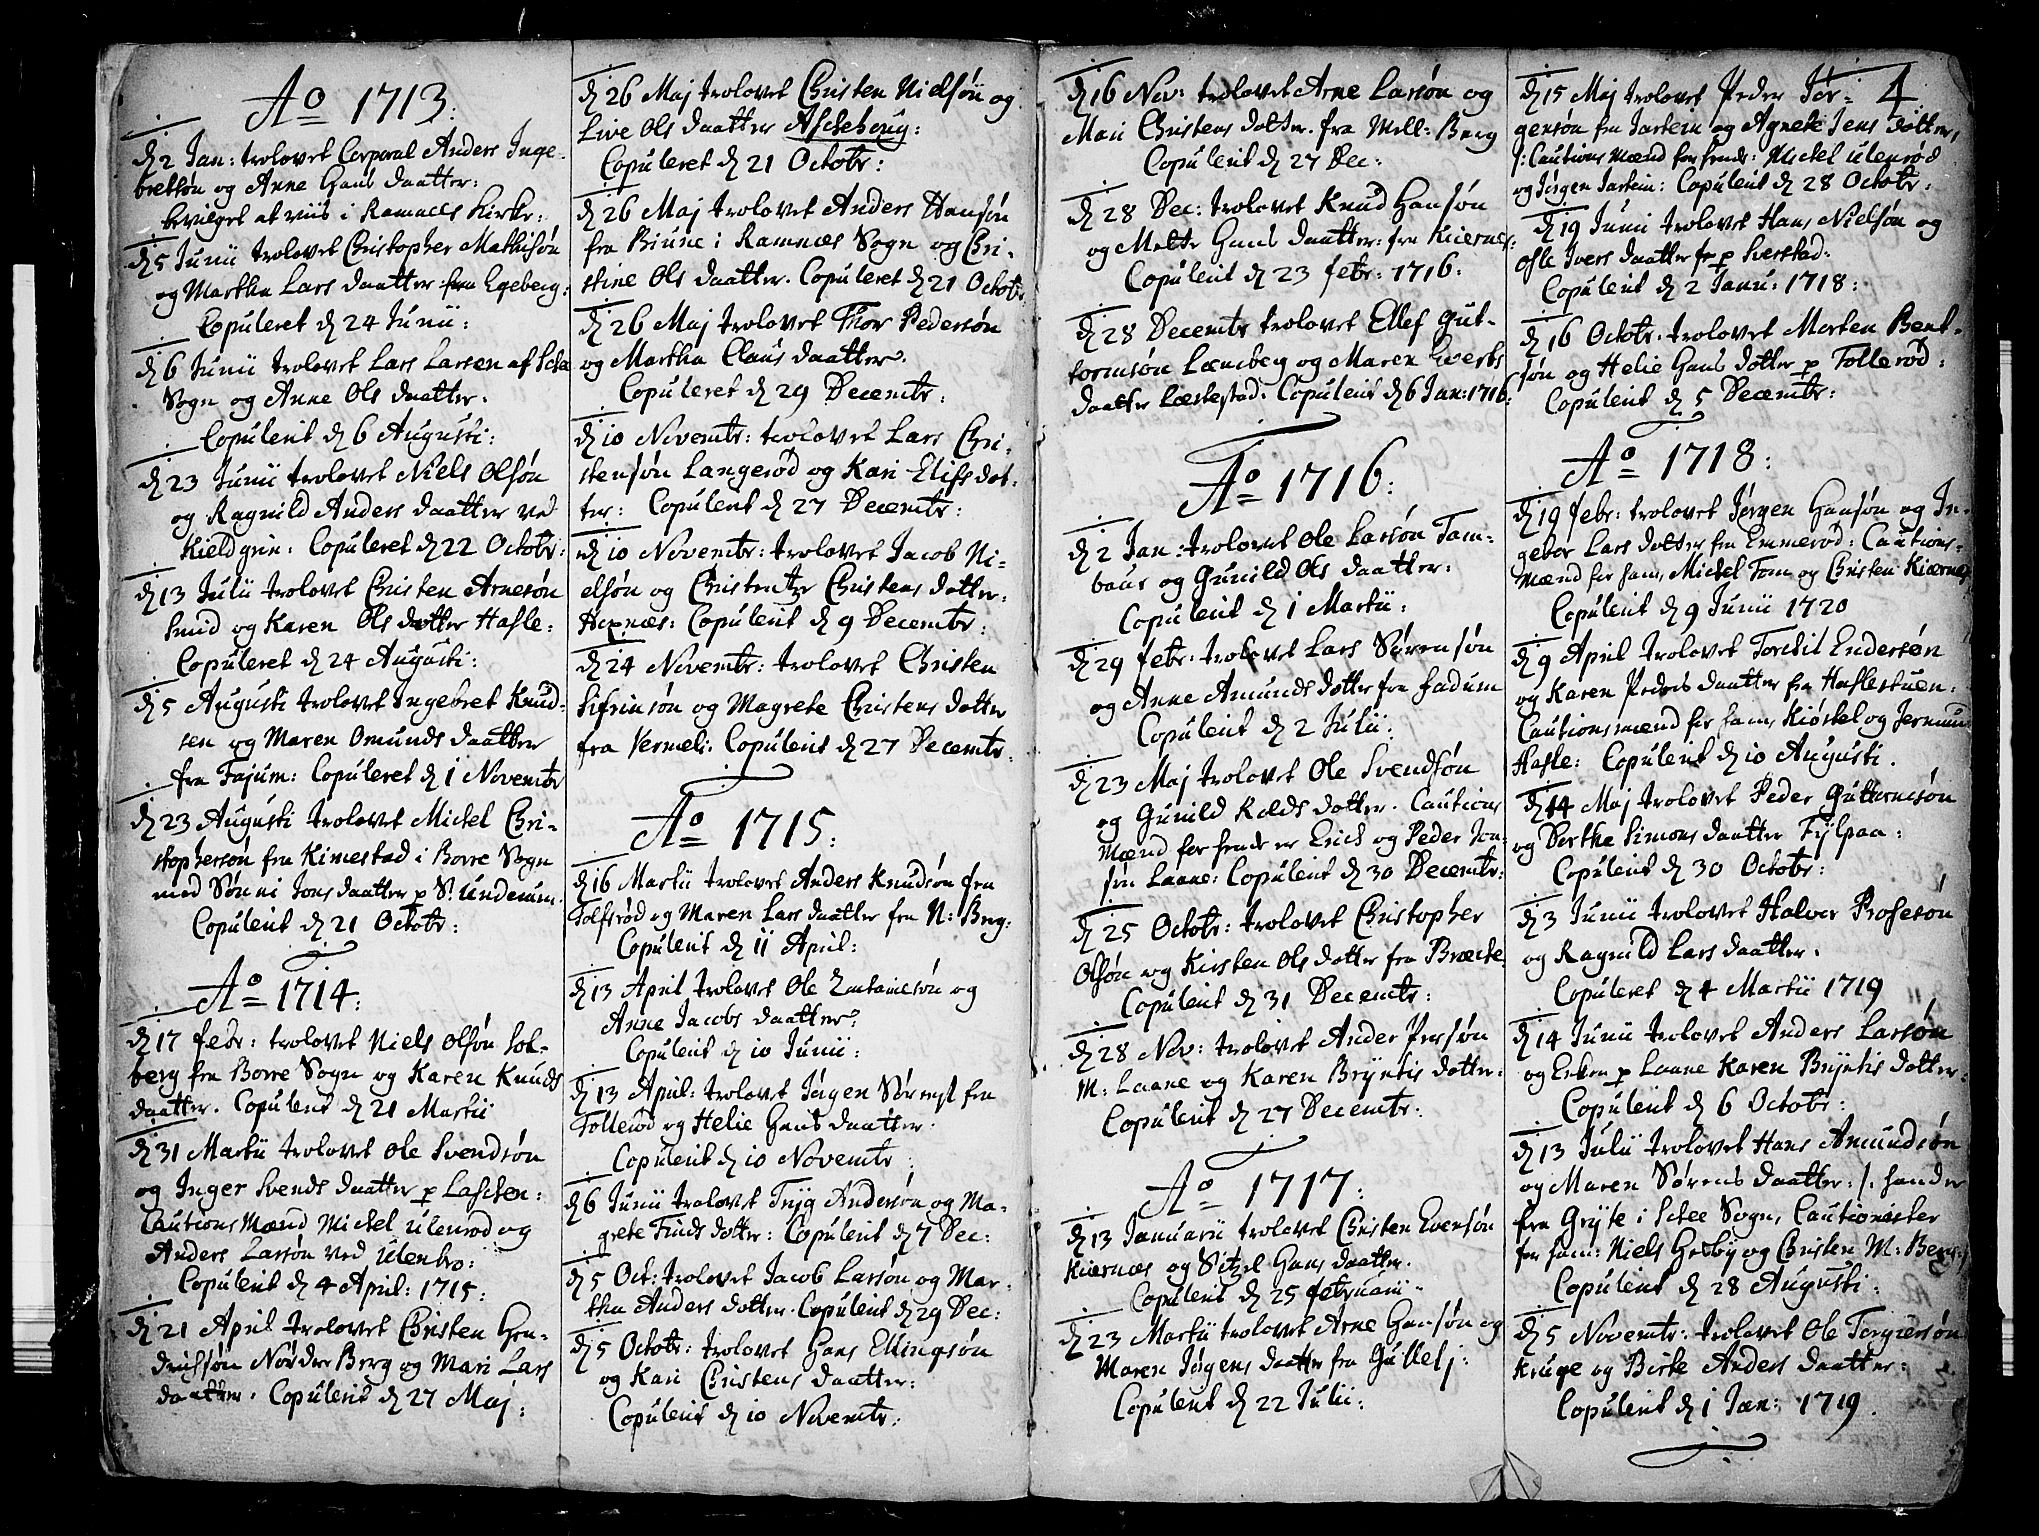 Ao 1713:
d 2 Jan: trolovet Corporal Anders Inge-
bretsøn og Anne Hans daatter:
bevilget at viis i Ramnes Kirke:
d 5 Junii trolovet Christopher Mathisøn
og Martha Lars daatter fra Egeberg:
Copuleret d 24 Junii:
d 6 Junii trolovet Lars Larsen af
Sogn og Anne Ols daatter.
Copulerit d 6 Augusti:
d 23 Junii trolovet Niels Olsøn
og Ragnild Anders daatter ved
Kieldgrin: Copuleret d 22 Octobr:
d 13 Julii trolovet Christen Arnesøn
Smid og Karen Ols dotter Hafle:
Copuleret d 24 Augusti:
d 5 Augusti trolovet Ingebret Knud-
sen og Maren Omunds daatter
fra Fajum: Copuleret d 1 Novembr
d 23 Augusti trolovet Mickel Chri-
stophersøn fra Kimestad i Borre Sogn
med Sønni Jons daatter p S. Underum.
Copulerit d 21 Octobr:
Ao 1714:
d 17 febr: trolovet Niels Olsøn Sol-
berg fra Borre Sogn og Karen Knuds
daatter. Copulerit d 21 Martii
d 31 Martii trolovet Ole Svendsøn
og Inger Svends daatter p Laschen:
Cautions Mænd Mickel Ulenrød og
Anders Larsøn ved Ulenbro:
Copulerit d 4 April: 1715:
d 21 April trolovet Christen Hen-
drichsøn Nørdre Berg og Mari Lars
daatter. Copulerit d 27 Maj:
d 26 Maj trolovet Christen Nielsøn og
Live Ols daatter Ascheberg:
Copuleret d 21 Octobr:
d 26 Maj trolovet Anders Hansøn
fra Biune i Ramnæs Sogn og Chri-
stine Ols daatter. Copuleret d 21 Octobr
d 26 Maj trolovet Thor Pedersøn
og Martha Claus daatter.
Copuleret d 29 Decembr:
d 10 Novembr: trolovet Lars Chri-
stensøn Langerød og Kari Elifs dot-
ter: Copulerit d 27 Decembr:
d 10 Novembr: trolovet Jacob Ni-
elsøn og Christentze Christens dotter:
Copulerit d 9 Decembr:
d 24 Novembr: trolovet Christen
Sifrinsøn og Magrete Christens dotter
fra Vermeli: Copulerit d 27 Decembr.
Ao 1715:
d 16 Martii trolovet Anders Knudsøn fra
Tolfsrød og Maren Lars daatter fra N: Berg:
Copulerit d 11 April:
d 13 April trolovet Ole og
Anne Jacobs daatter:
Copulerit d 10 Junii:
d 13 April: trolovet Jørgen fra
Tollerød og Helie Hans daatter.
Copulerit d 10 Novembr
d 6 Junii trolovet Tryg Andersøn og Ma-
grete Finds dotter: Copulerit d 7 Dec:
d 5 Oct: trolovet Jacob Larsøn og Mar-
tha Anders dotter. Copulerit d 29 Dec:
d 5 Octobr: trolovet Hans Ellingsøn
og Kari Christens daatter:
Copulerit d 10 Novembr:
d 16 Nov: trolovet Arne Larsøn og
Mari Christens dotter. fra Mell: Berg
Copulerit d 27 Dec:
d 28 Dec: trolovet Knud Hansøn
og Mette Hans daatter: fra Kiernes:
Copulerit d 23 febr: 1716:
d 28 Decembr trolovet Ellef Gut-
tormsøn Læneberg og Maren Everts
daatter Læskestad. Copulerit d 6 Jan: 1716:
Ao 1716:
d 2 Jan: trolovet Ole Larsøn Tam-
bour og Gunild Ols daatter:
Copulerit d 1 Martii:
d 29 febr: trolovet Lars Sørensøn
og Anne Amunds dotter fra Fadum
Copulerit d 2 Julii:
d 23 Maj trolovet Ole Svendsøn
og Gunild Rolds dotter. Cautions
Mænd for hende er Erich og Peder Jon-
søn Laane: Copulerit d 30 Decembr:
d 25 Octobr: trolovet Christopher
Olsøn og Kirsten Ols dotter fra Brecke.
Copulerit d 31 Decembr:
d 28 Nov: trolovet Ander Persøn
M: Laane og Karen Bryntis dotter:
Copulerit d 27 Decembr:
Ao 1717:
d 13 Januarii trolovet Christen Evensøn
Kiernæs og Sitzel Hans daatter.
Copulerit d 25 februarii
d 23 Martii trolovet Arne Hansøn og
Maren Jørgens daatter fra Gullelj:
Copulerit d 22 Julii:
4
d 15 Maj trolovet Peder Jør-
gensøn fra Jarlein og Agnete Jens dotter,
/: Cautions Mænd for hende: Mickel Ulenrød
og Jørgen Jarlein: Copulerit d 28 Octobr:
d 19 Junii trolovet Hans Nielsøn og
Osle Ivers daatter p Sverstad.
Copulerit d 2 Janu: 1718:
d 16 Octobr. trolovet Morten Bent-
søn og Helie Hans dotter p Tollerød:
Copulerit d 5 Decembr:
Ao 1718:
d 19 febr: trolovet Jørgen Hansøn og In-
gebor Lars dotter fra Emmerød: Cautions-
Mænd for ham, Mickel Tom og Christen Kiærnes
Copulerit d 9 Junii 1720
d 9 April trolovet Torekil Endersøn
og Karen Peders daatter fra Haslestuen:
Cautionsmænd for ham, Kiøstel og Jermun
Hafle: Copulerit d 10 Augusti.
d 14 Maj trolovet Peder Guttormsøn
og Berthe Simons daatter Fylpaa:
Copulerit d 30 Octobr:
d 3 Junii trolovet Halvor Rofesøn
og Ragnild Lars daatter.
Copuleret d 4 Martii 1719
d 14 Junii trolovet Anders Larsøn
og p Laane Karen Bryntis dotter:
Copulerit d 6 Octobr:
d 13 Julii trolovet Hans Amundsøn
og Maren Sørens daatter: /:
fra Gryte i Schee Sogn, Cautionister
for ham: Niels Gretby og Christen M: Berg:/
Copulerit d 28 Augusti:
d 5 Novembr: trolovet Ole Torgiersøn
Kruge og Birte Anders daatter:
Copulerit d 1 Jan: 1719.